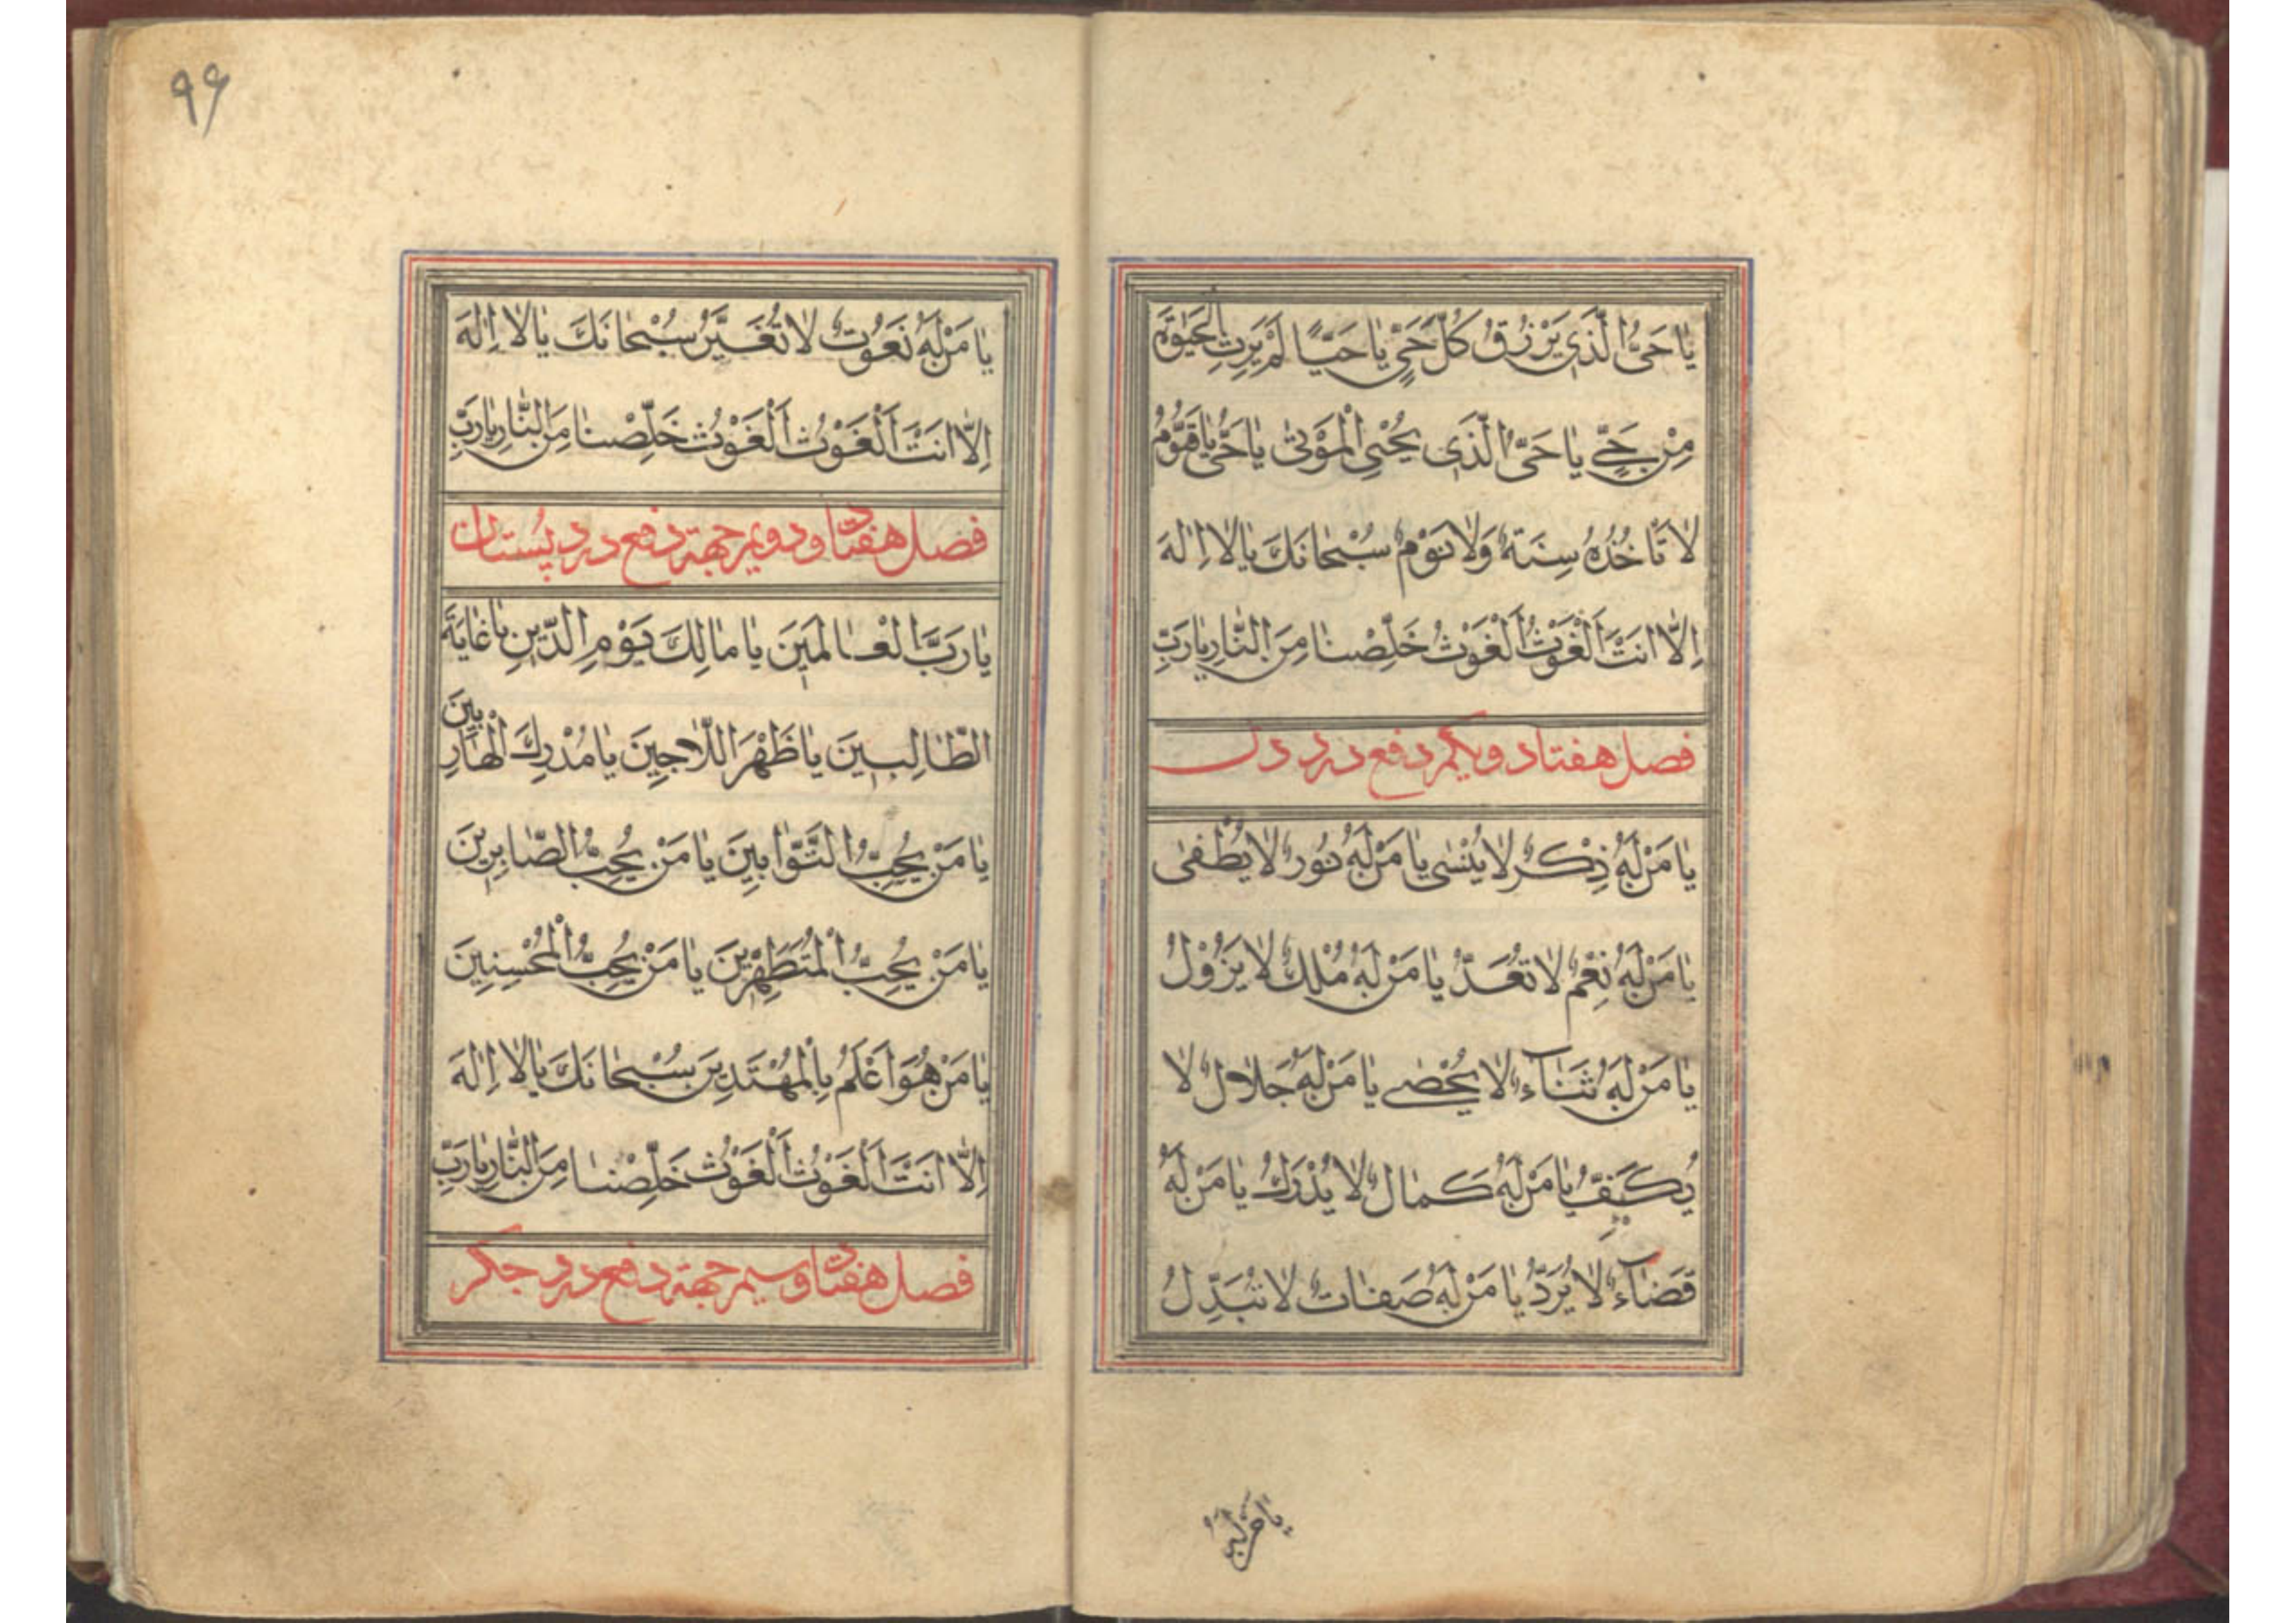 يَا حَيُّ الَّذِي يَرْزُقُ كُلَّ حَيٍّ يَا حَيًّا لَمْ يَرِثِ الْحَيٰوةَ
مِنْ حَيٍّ يَا حَيُّ الَّذِي يُحْيِي الْمَوْتىٰ يَا حَيُّ يَا قَيُّومُ
لَا تَأْخُذُهُ سِنَةٌ وَلَا نَوْمٌ سُبْحَانَكَ يَا لَا إِلٰهَ
إِلَّا أَنْتَ الْغَوْثُ الْغَوْثُ خَلِّصْنَا مِنَ النَّارِ يَا رَبِّ
فصل هفتاد و یکم دفع درد دل
يَا مَنْ لَهُ ذِكْرٌ لَا يُنْسىٰ يَا مَنْ لَهُ نُورٌ لَا يُطْفىٰ
يَا مَنْ لَهُ نِعَمٌ لَا تُعَدُّ يَا مَنْ لَهُ مُلْكٌ لَا يَزُولُ
يَا مَنْ لَهُ ثَنَاءٌ لَا يُحْصىٰ يَا مَنْ لَهُ جَلَالٌ لَا
يُكَيَّفُ يَا مَنْ لَهُ كَمَالٌ لَا يُدْرَكُ يَا مَنْ لَهُ
قَضَاءٌ لَا يُرَدُّ يَا مَنْ لَهُ صِفَاتٌ لَا تُبَدَّلُ
يَا مَنْ لَهُ
۹۶
يَا مَنْ لَهُ نُعُوتٌ لَا تُغَيَّرُ سُبْحَانَكَ يَا لَا إِلٰهَ
إِلَّا أَنْتَ الْغَوْثُ الْغَوْثُ خَلِّصْنَا مِنَ النَّارِ يَا رَبِّ
فصل هفتاد و دویم جهة دفع درد پستان
يَا رَبَّ الْعَالَمِينَ يَا مَالِكَ يَوْمِ الدِّينِ يَا غَايَةَ
الطَّالِبِينَ يَا ظَهْرَ اللَّاجِينَ يَا مُدْرِكَ الْهَارِبِينَ
يَا مَنْ يُحِبُّ التَّوَّابِينَ يَا مَنْ يُحِبُّ الصَّابِرِينَ
يَا مَنْ يُحِبُّ الْمُتَطَهِّرِينَ يَا مَنْ يُحِبُّ الْمُحْسِنِينَ
يَا مَنْ هُوَ أَعْلَمُ بِالْمُهْتَدِينَ سُبْحَانَكَ يَا لَا إِلٰهَ
إِلَّا أَنْتَ الْغَوْثُ الْغَوْثُ خَلِّصْنَا مِنَ النَّارِ يَا رَبِّ
فصل هفتاد و سیم جهة دفع درد جگر